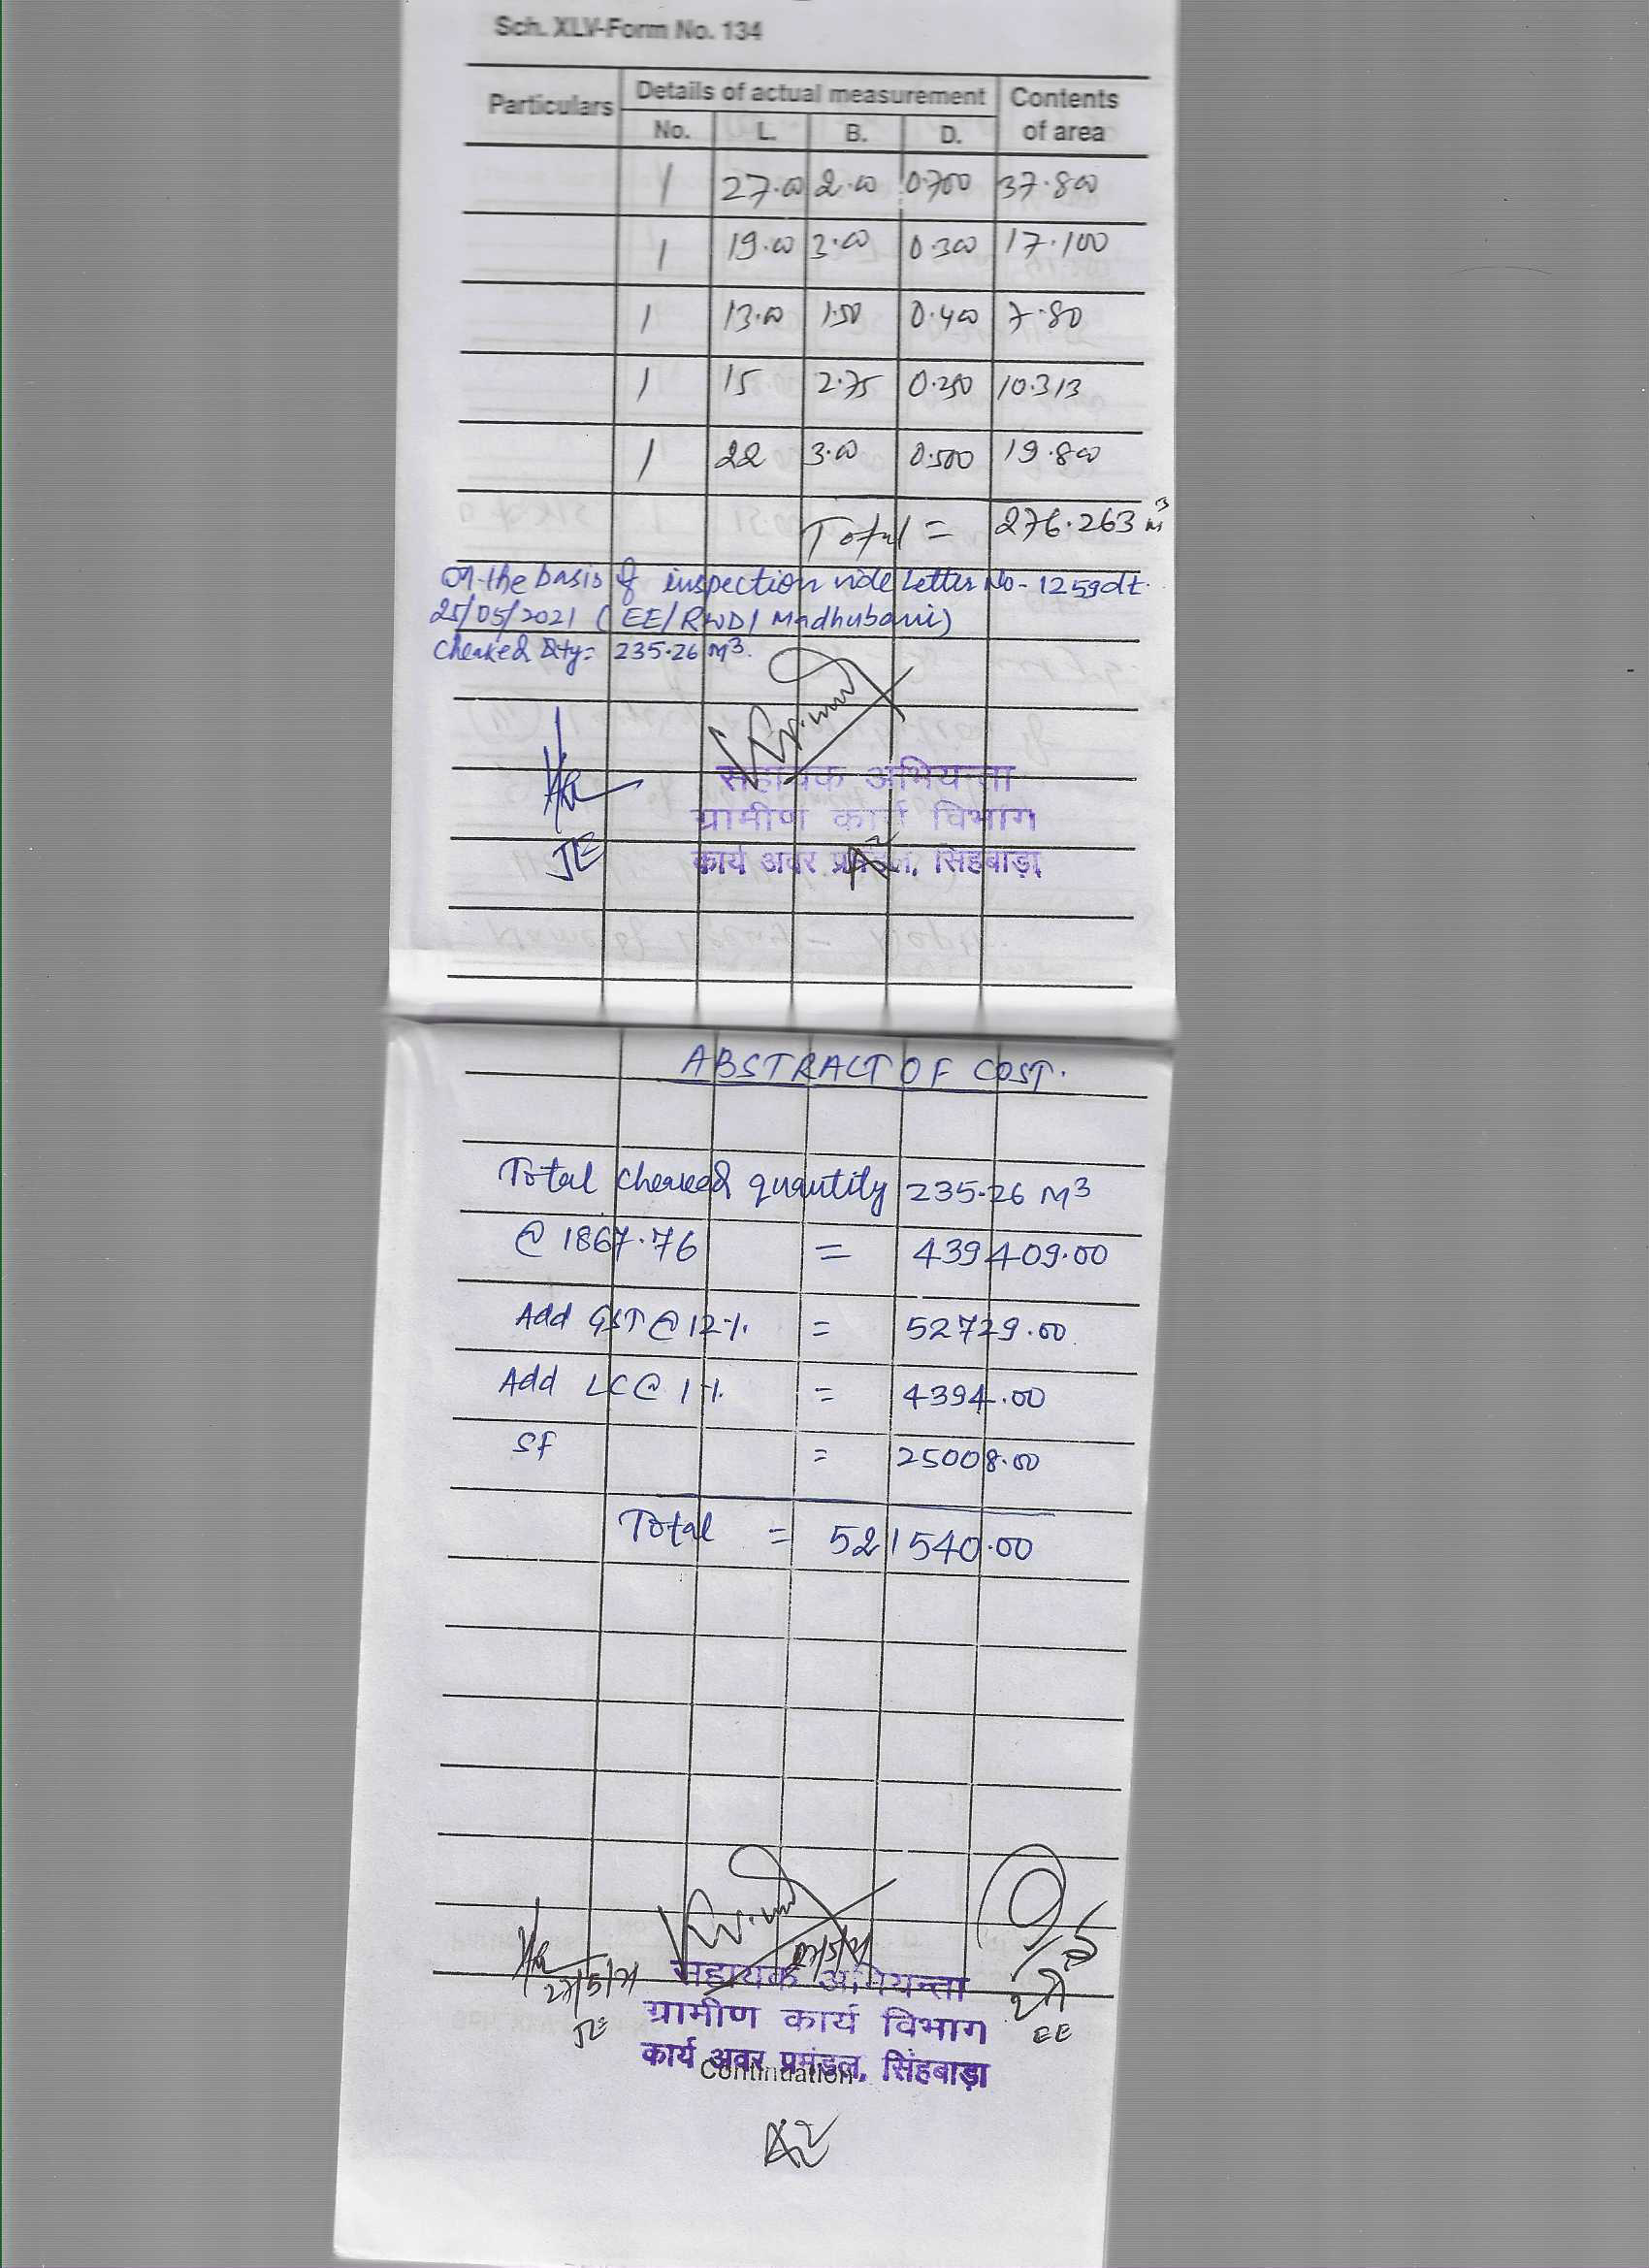 Sch. XLV-Form No. 134
Particulars Details of actual measurement Contents of area
No. L. B. D.
1 27.00 2.00 0.700 37.800
1 19.00 3.00 0.300 17.100
1 13.00 1.50 0.400 7.80
1 15 2.75 0.250 10.313
1 22 3.00 0.300 19.800
Total = 276.263 m³
on the basis of inspection vide Letter No- 1259 dt.
25/05/2021 (EE/RWD/Madhubani)
cheaked Qty= 235.26 M3
सहायक अभियन्ता
ग्रामीण कार्य विभाग
JE कार्य अवर प्रमंडल, सिंहवाड़ा
ABSTRACT OF COST.
Total cheaked quantity 235.26 M3
@ 1867.76 = 439409.00
Add GST @ 12%. = 52729.00
Add LC @ 1%. = 4394.00
SF = 25008.00
Total = 521540.00
27/5/21 सहायक अभियन्ता
JE ग्रामीण कार्य विभाग EE
कार्य अवर प्रमंडल, सिंहवाड़ा
Continuation